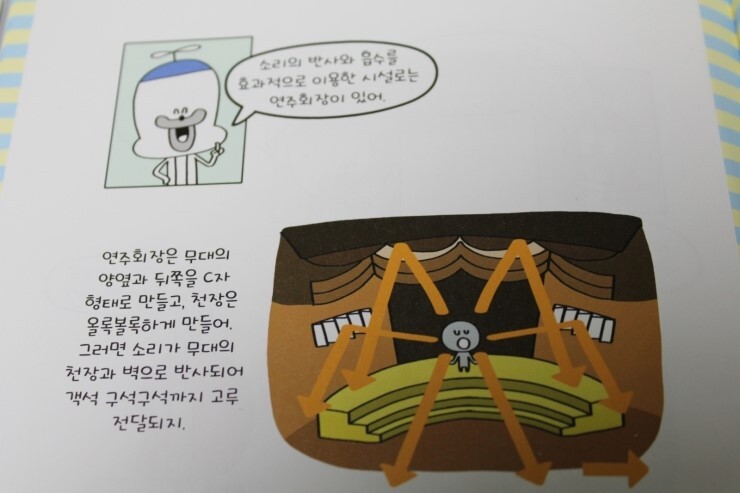 소리의 반사와 흡수를
효과적으로 이용한 시설로는
연주회장이 있어.
연주회장은 무대의
양옆과 뒤쪽을 C자
형태로 만들고, 천장은
올록볼록하게 만들어.
그러면 소리가 무대의
천장과 벽으로 반사되어
객석 구석구석까지 고루
전달되지.